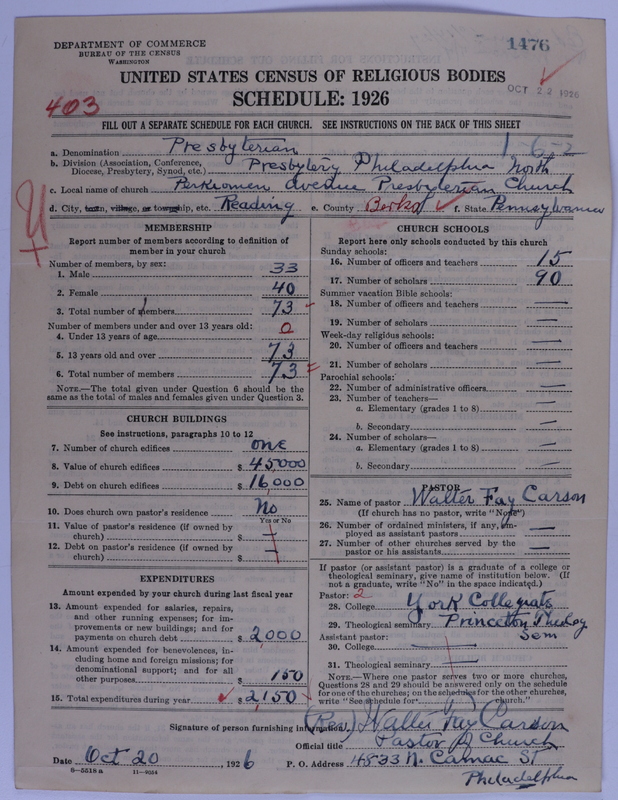 DEPARTMENT OF COMMERCE
BUREAU OF THE CENSUS
WASHINGTON
1476
UNITED STATES CENSUS OF RELIGIOUS BODIES
SCHEDULE: 1926
OCT 22 1926
403
FILL OUT A SEPARATE SCHEDULE FOR EACH CHURCH. SEE INSTRUCTIONS ON THE BACK OF THIS SHEET
1-6-2
a. Denomination Presbyterian
b. Division (Association, Conference, Diocese, Presbytery, Synod, etc.) Presbytery Philadelphia North
c. Local name of church Perkiomen Avenue Presbyterian Church
d. City, town, village, or township, etc. Reading e. County Berks f. State Pennsylvania
MEMBERSHIP
Report number of members according to definition of
member in your church
Number of members, by sex:
1. Male 33
2. Female 40
3. Total number of members 73
Number of members under and over 13 years old:
4. Under 13 years of age 0
5. 13 years old and over 73
6. Total number of members 73
NOTE.—The total given under Question 6 should be
same as the total of males and females given under Question 3.
CHURCH BUILDINGS
See instructions, paragraphs 10 to 12
7. Number of church edifices one
8. Value of church edifices $ 45000
9. Debt on church edifices $ 16,000
10. Does church own pastor's residence No
Yes or No
11. Value of pastor's residence (if owned by
church) $ —
12. Debt on pastor's residence (if owned by
church) $ —
EXPENDITURES
Amount expended by your church during last fiscal year
13. Amount expended for salaries, repairs,
and other running expenses; for im-
provements or new buildings; and for
payments on church debt $ 2,000
14. Amount expended for benevolences, in-
cluding home and foreign missions; for
denominational support; and for all
other purposes $ 150
15. Total expenditures during year $ 2,150
CHURCH SCHOOLS
Report here only schools conducted by this church
Sunday schools:
16. Number of officers and teachers 15
17. Number of scholars 90
Summer vacation Bible schools:
18. Number of officers and teachers —
19. Number of scholars —
Week-day religious schools:
20. Number of officers and teachers —
21. Number of scholars —
Parochial schools:
22. Number of administrative officers —
23. Number of teachers—
a. Elementary (grades 1 to 8) —
b. Secondary —
24. Number of scholars—
a. Elementary (grades 1 to 8) —
b. Secondary —
PASTOR
25. Name of pastor Walter Fay Carson
(If church has no pastor, write "None")
26. Number of ordained ministers, if any, em-
ployed as assistant pastors —
27. Number of other churches served by the
pastor or his assistants —
If pastor (or assistant pastor) is a graduate of a college or
theological seminary, give name of institution below. (If
not a graduate, write "No" in the space indicated.)
Pastor: 2
28. College York Collegiate
29. Theological seminary Princeton Theolog
Sem
Assistant pastor:
30. College —
31. Theological seminary —
NOTE.—Where one pastor serves two or more churches,
Questions 28 and 29 should be answered only on the schedule
for one of the churches; on the schedules for the other churches,
write "See schedule for church."
Signature of person furnishing information (Rev.) Walter Fay Carson
Official title Pastor of Church
Date Oct 20, 1926 P. O. Address 4533 N. Camac St
Philadelphia
8—5518 a 11—9054